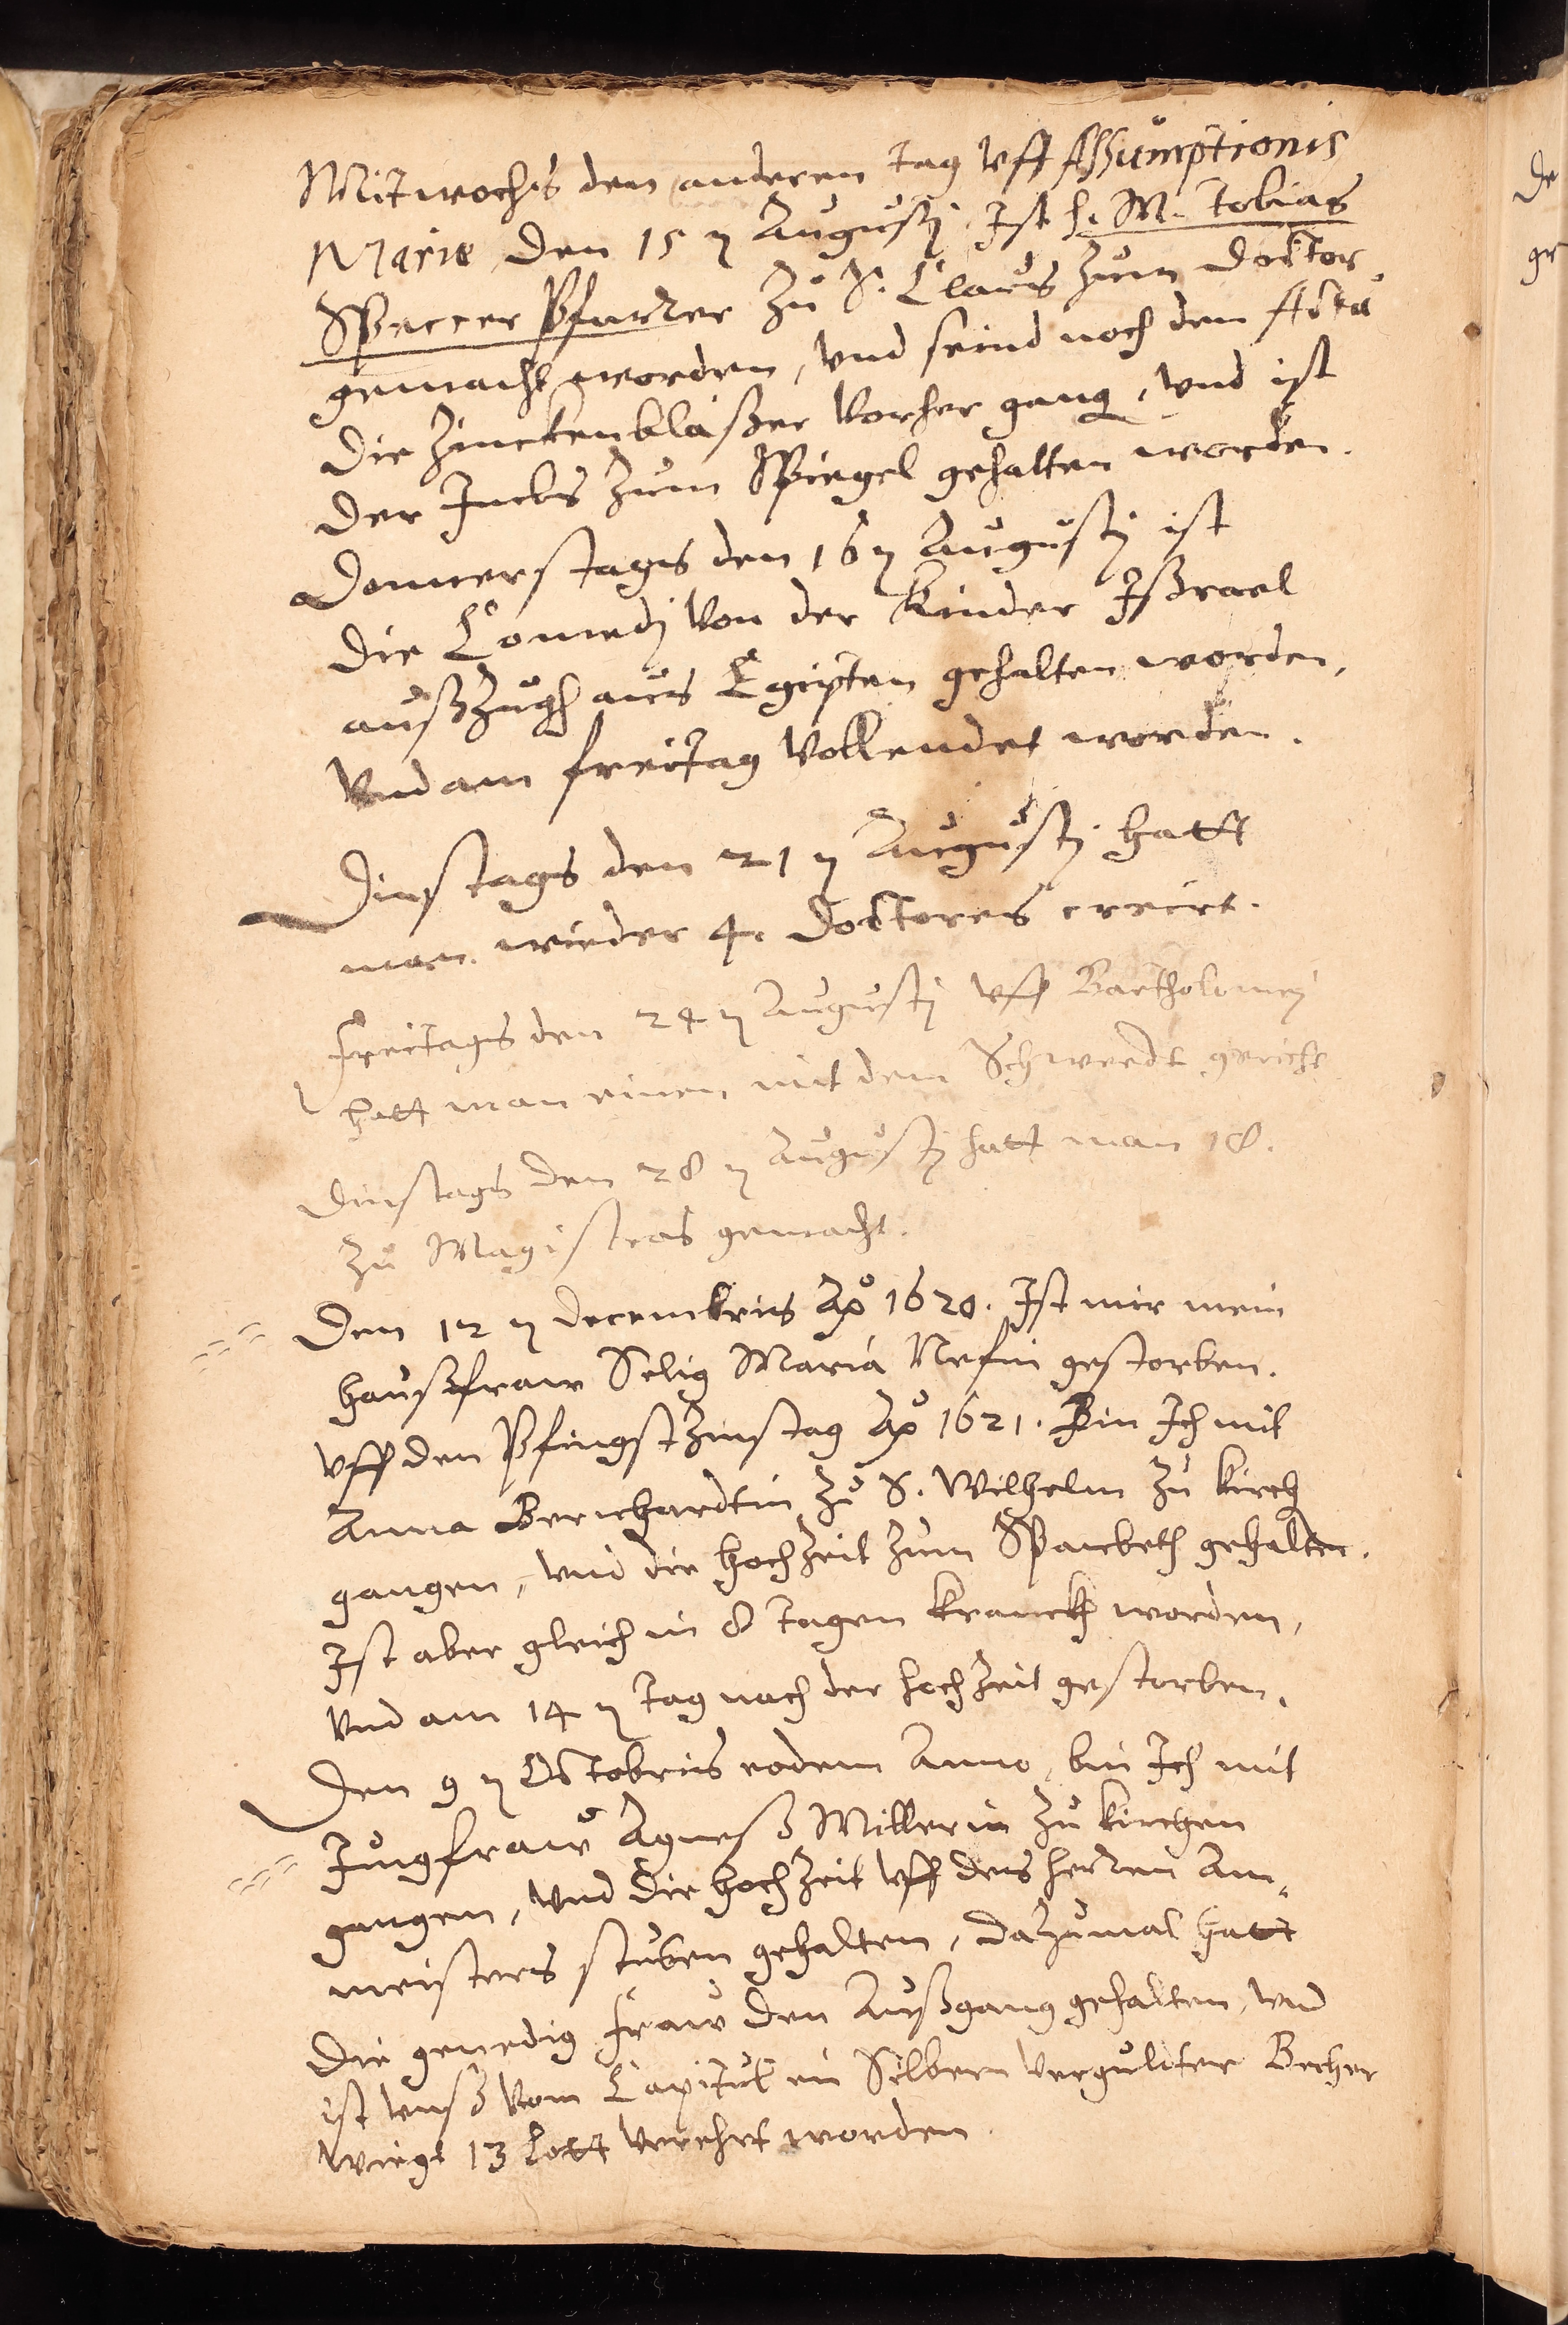 Mitwochs den anderen tag vff Assumptionis
Marie den 15 n Augustj Ist h. M. Tobias
Speccer Pfarrer zu S. Claus zum Doctor
gemacht worden, vnd seind noch dem Actu
die Zinckenblaßer vorher gang, vnd ist
der Imbs zum Spiegel gehalten worden.
Donnerstags den 16 n Augustj ist
die Comedj von der Kinder Ißrael
außzugh aus Egipten gehalten worden,
Vnd am freitag vollendet worden.
Dinstags den 21 n Augustj hatt
man wieder 4. Doctores creirt.
Freitags den 24 n Augustj vff Bartholomej
hatt man einen mit dem Schwerdt gericht
Dinstags den 28 n Augustj hatt man 18.
zu Magistros gemacht.
Den 12 n Decembris Ao 1620. Ist mir mein
haußfraw Selig Maria Nefin gestorben.
Vff den Pfingstzinstag Ao 1621. Bin Ich mit
Anna Bernhardtin zu S. Wilhelm zu kirch
gangen, vnd die hochzeit zum Spanbeth gehalten.
Ist aber gleich in 8 tagen kranckh worden,
Vnd am 14 n tag nach der hochzeit gestorben.
Den 9 n Octobris eodem Anno, bin Ich mit
Jungfraw Agneß Millerin zu kirchen
gangen, vnd die hochzeit vff des herren Am-
meisters stuben gehalten, dazumal hatt
die genedig Fraw den Außgang gehalten, vnd
ist vnß vom Capitul ein Silbern vergulter Becher
wiegt 13 Lott verehrt worden.
De
ge